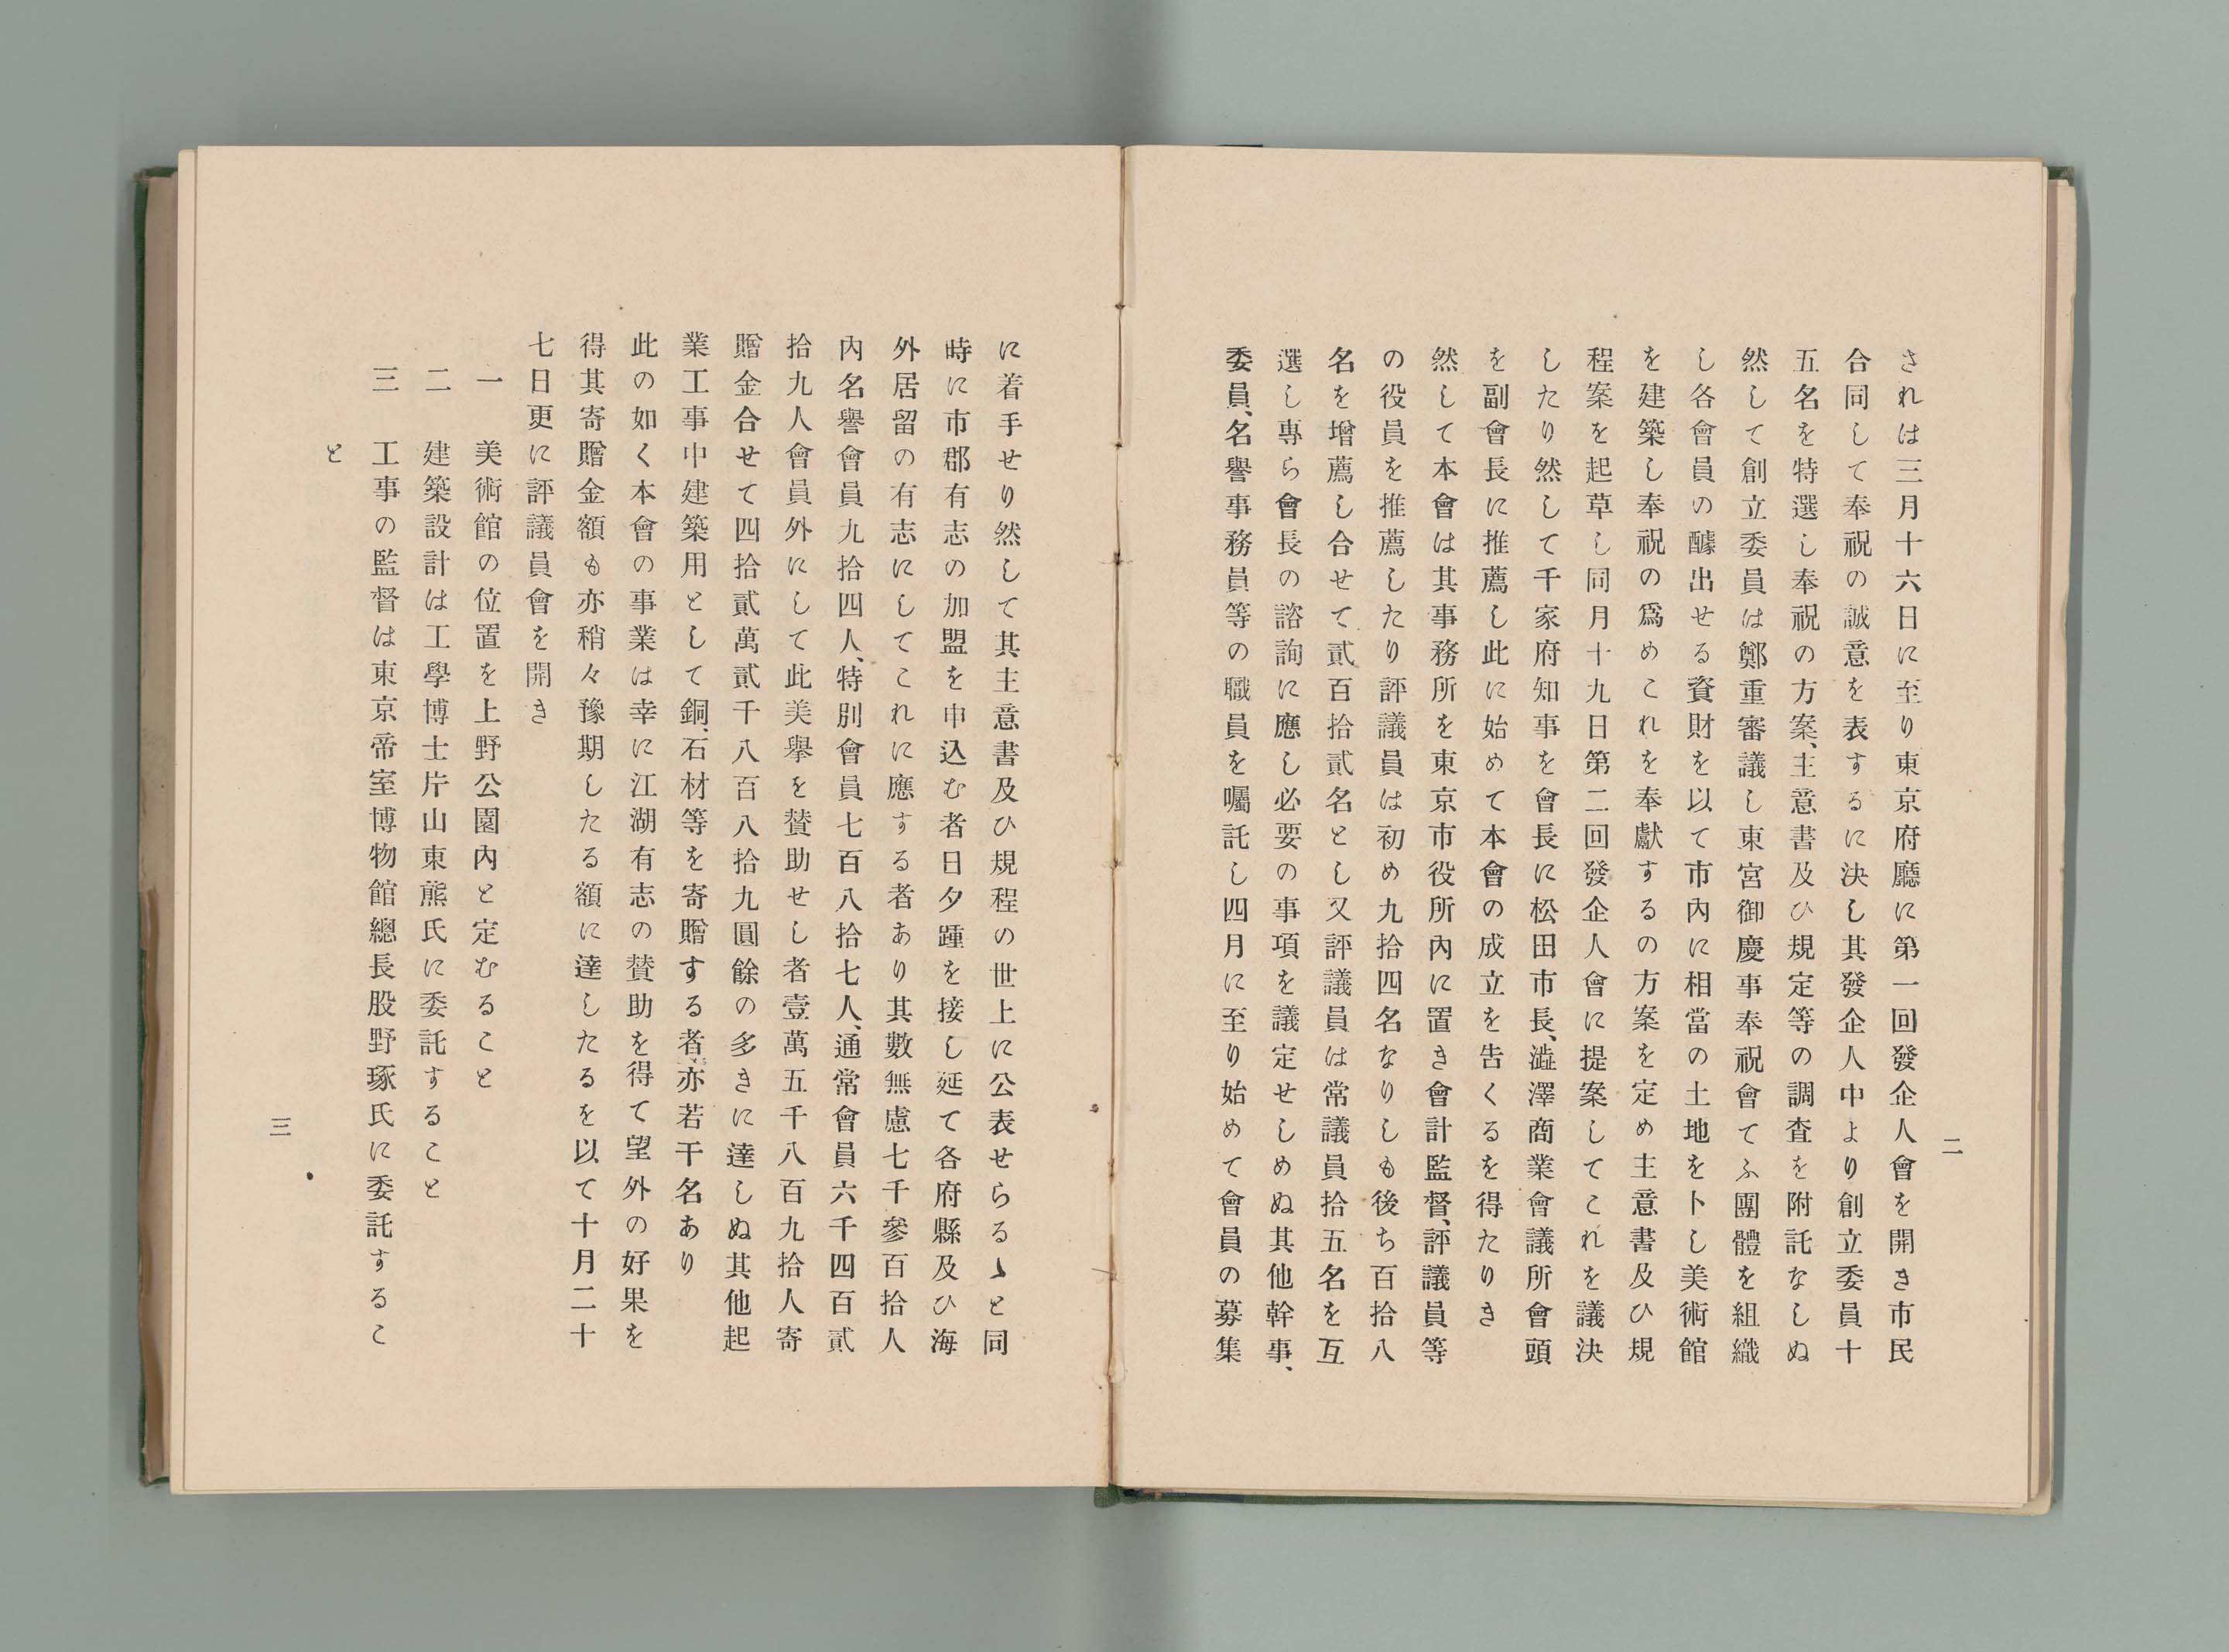 二
されは三月十六日に至り東京府廳に第一回發企人會を開き市民
合同して奉祝の誠意を表するに決し其發企人中より創立委員十
五名を特選し奉祝の方案、主意書及ひ規定等の調査を附託なしぬ
然して創立委員は鄭重審議し東宮御慶事奉祝會てふ團體を組織
し各會員の醵出せる資財を以て市內に相當の土地をトし美術館
を建築し奉祝の爲めこれを奉獻するの方案を定め主意書及ひ規
程案を起草し同月十九日第二回發企人會に提案してこれを議決
したり然して千家府知事を會長に松田市長、澁澤商業會議所會頭
を副會長に推薦し此に始めて本會の成立を告くるを得たりき
然して本會は其事務所を東京市役所內に置き會計監督、評議員等
の役員を推薦したり評議員は初め九拾四名なりしも後ち百拾八
名を增薦し合せて貳百拾貳名とし又評議員は常議員拾五名を互
選し專ら會長の諮詢に應し必要の事項を議定せしめぬ其他幹事、
委員、名譽事務員等の職員を囑託し四月に至り始めて會員の募集
に着手せり然して其主意書及ひ規程の世上に公表せらるゝと同
時に市郡有志の加盟を申込む者日夕踵を接し延て各府縣及ひ海
外居留の有志にしてこれに應する者あり其數無慮七千參百拾人
內名譽會員九拾四人、特別會員七百八拾七人、通常會員六千四百貳
拾九人會員外にして此美擧を賛助せし者壹萬五千八百九拾人寄
贈金合せて四拾貳萬貳千八百八拾九圓餘の多きに達しぬ其他起
業工事中建築用として銅、石材等を寄贈する者、亦若干名あり
此の如く本會の事業は幸に江湖有志の賛助を得て望外の好果を
得其寄贈金額も亦稍々豫期したる額に達したるを以て十月二十
七日更に評議員會を開き
一 美術館の位置を上野公園內と定むること
二 建築設計は工學博士片山東熊氏に委託すること
三 工事の監督は東京帝室博物館總長股野琢氏に委託するこ
と
三